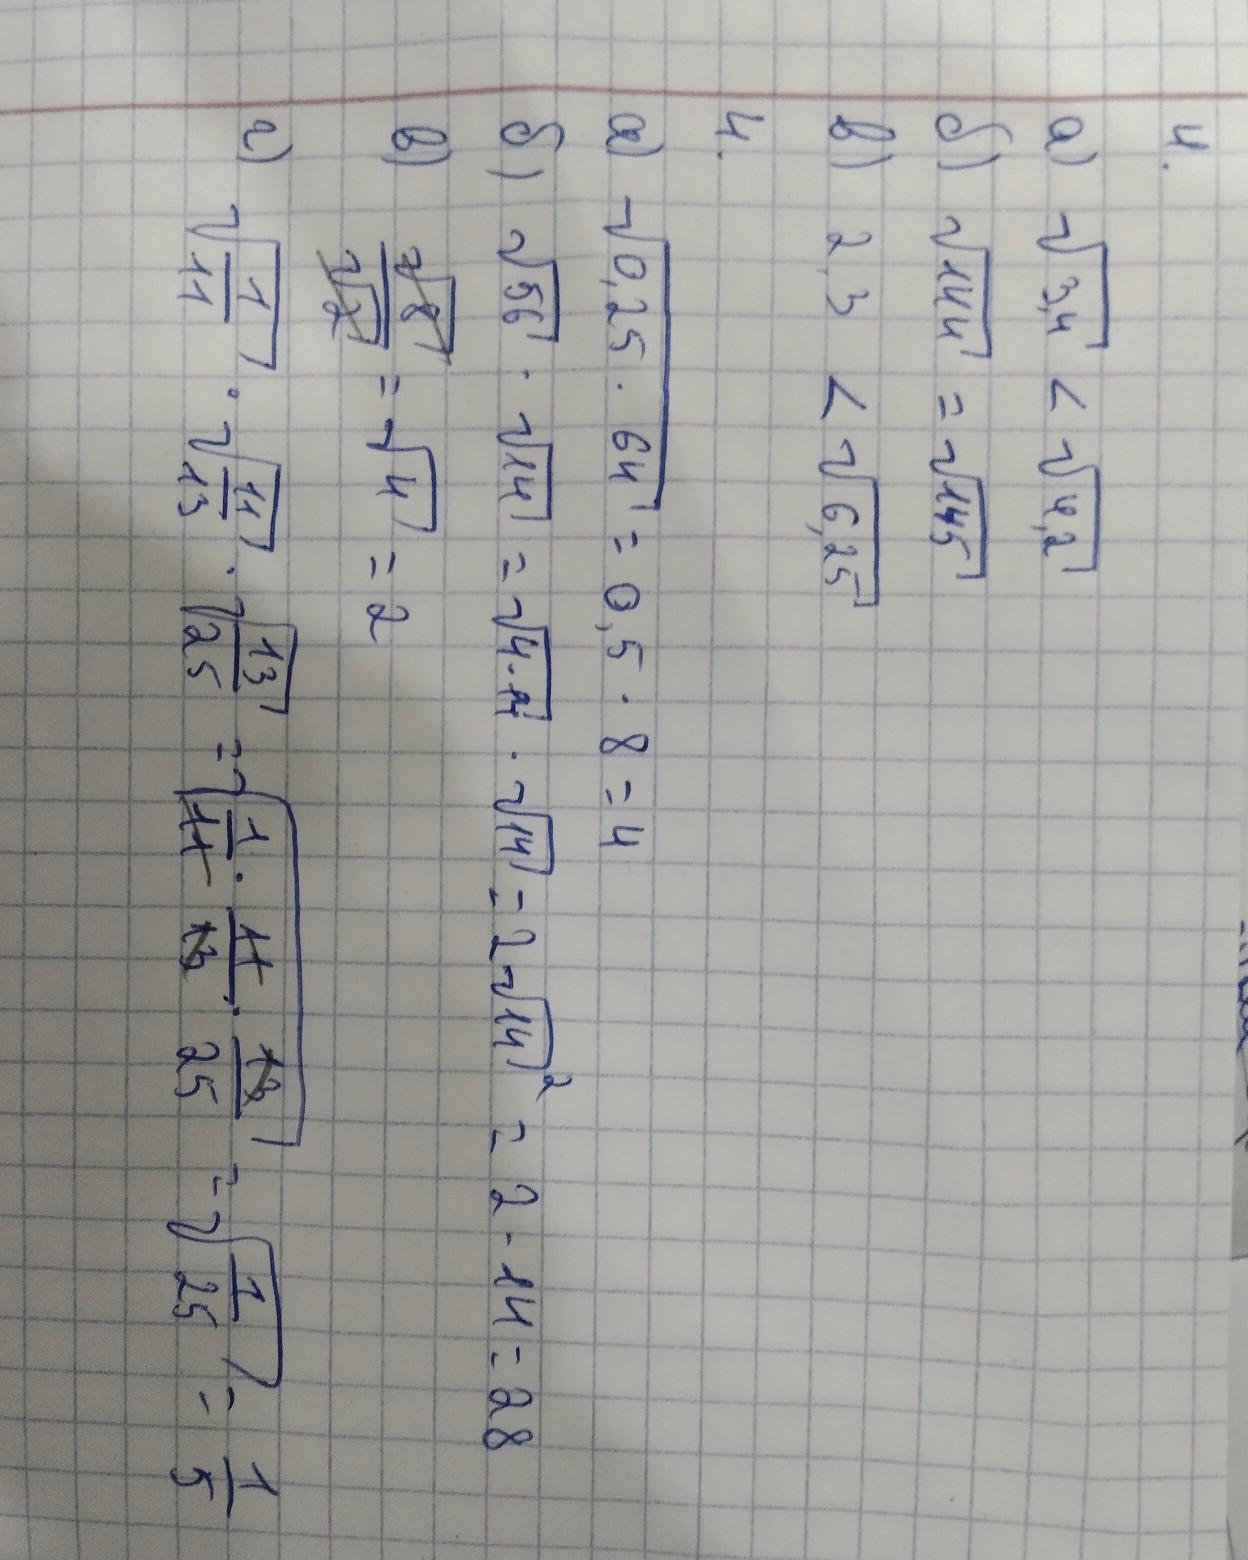 4.
а) √3,4 < √4,2
б) √144 = √145
в) 2,3 < √6,25
4.
а) √0,25 · 64 = 0,5 · 8 = 4
б) √56 · √14 = √4·14 · √14 = 2√14² = 2 · 14 = 28
в) √8/√2 = √4 = 2
г) √1/11 · √11/13 · √13/25 = √1/11 · 11/13 · 13/25 = √1/25 = 1/5